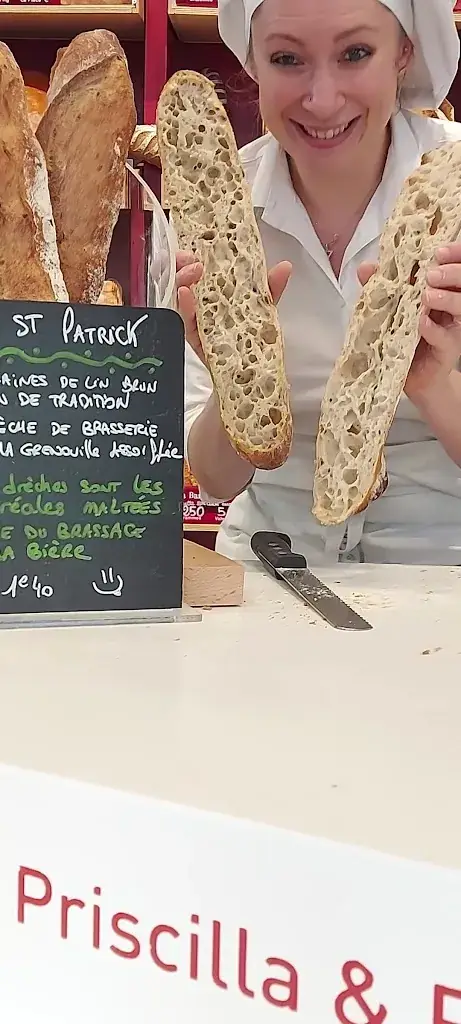 ST PATRICK
AINES DE LIN BRUN
N DE TRADITION
ÈCHE DE BRASSERIE
LA GRENOUILLE ASSOIFFÉE
drèches SONT LES
réales MALTÉES
E DU BRASSAGE
A BIÈRE
1€40
250
Priscilla &